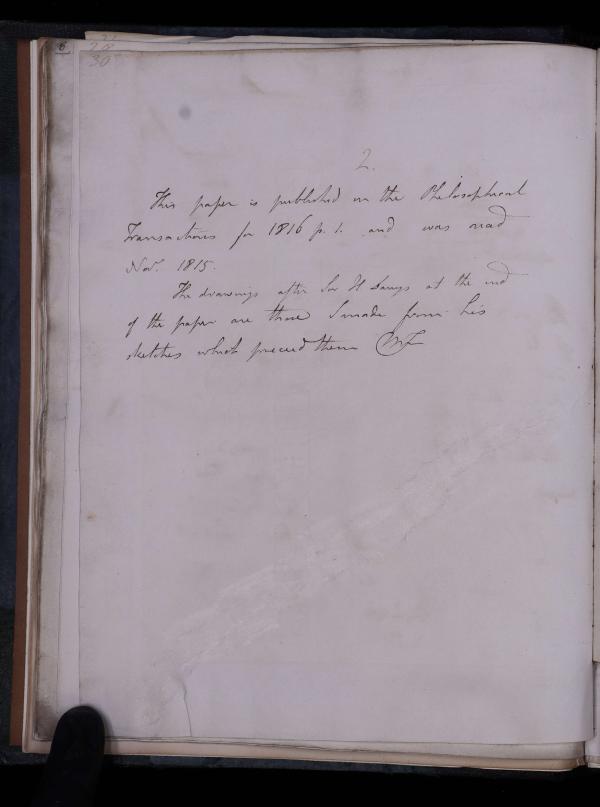 6
30
2.
This paper is published in the Philosophical
Transactions for 1816 p. 1. and was read
Novr. 1815.
The drawings after Sir H Davys at the end
of the paper are those I made from his
sketches which preceed them MF